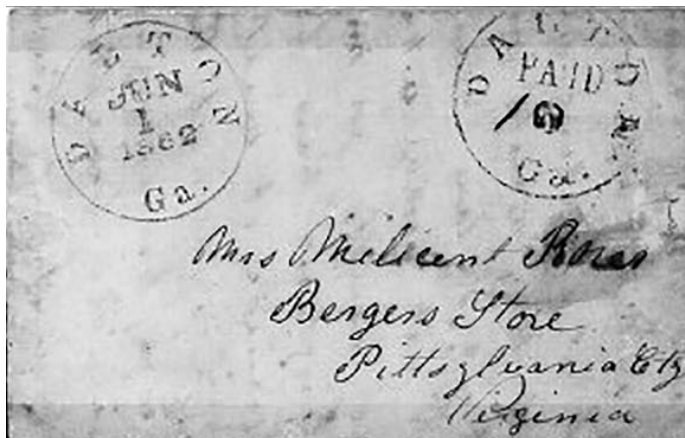 DALTON
JUN
1
1862
Ga.
DALTON
PAID
Ga.
Mrs Milicent
Bergers Store
Pittsylvania Cty
Virginia